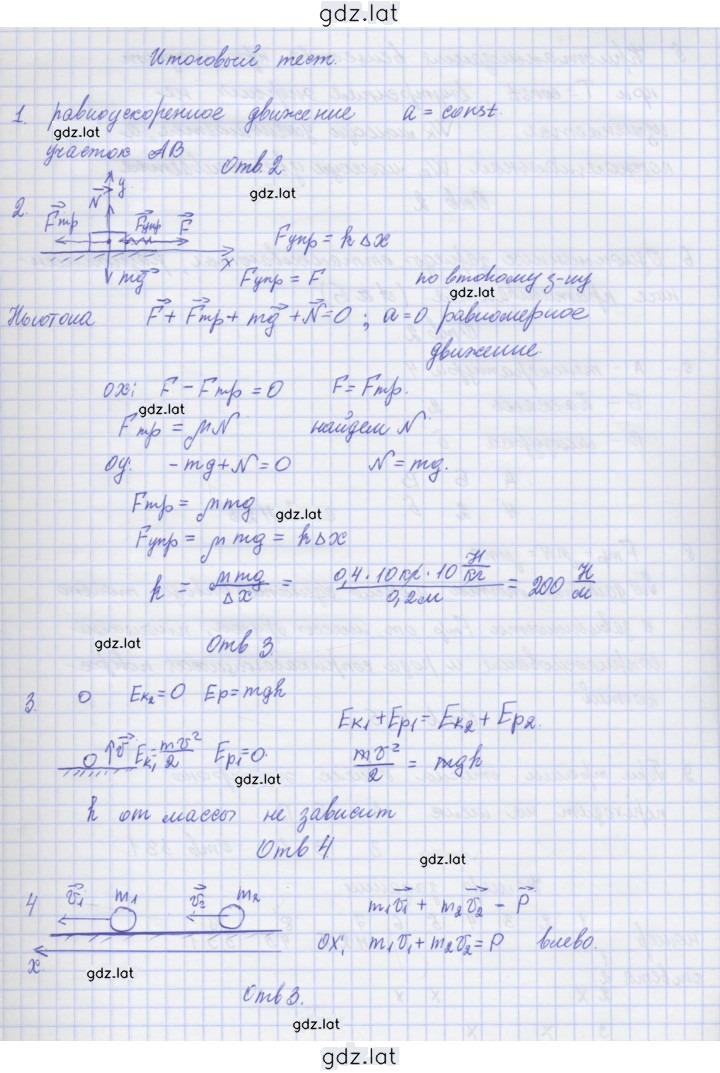 gdz.lat
Итоговый тест.
1. равноускоренное движение a = const.
gdz.lat
участок AB Отв. 2
gdz.lat
2. N y
Fтр Fупр F Fупр = k Δx
x
mg Fупр = F по втокому з-ну
gdz.lat
Ньютона F + Fтр + mg + N = 0 ; a = 0 равномерное
движение.
ox: F - Fтр = 0 F = Fтр.
gdz.lat
Fтр = μN найдем N
oy: - mg + N = 0 N = mg.
Fтр = μmg
gdz.lat
Fупр = μ mg = k Δx
k = μmg/Δx = 0,4 · 10 кг · 10 Н/кг / 0,2м = 200 Н/м
gdz.lat
Отв 3
3. Eк2 = 0 Ep = mgh
Eк1 + Ep1 = Eк2 + Ep2.
v Eк1 = mv²/2 Ep1 = 0. mv²/2 = mgh
gdz.lat
h от массы не зависит
Отв 4
gdz.lat
4 v1 m1 v2 m2 m1v1 + m2v2 - P
ox: m1v1 + m2v2 = P влево.
x
gdz.lat
Отв 3.
gdz.lat
gdz.lat